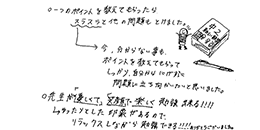 ○一つのポイントを教えてもらったら
スラスラと他の問題もとけました。
今、分からない事も、
ポイントを教えてもらって
しっかり、自分の力だけで
問題に立ち向かたいと思いました。
○先生が優しくて、笑顔で楽しく勉強出来る!!!!
しゅっとした印象があるので、
リラックスしながら勉強できる!!!!ありがとうございました。